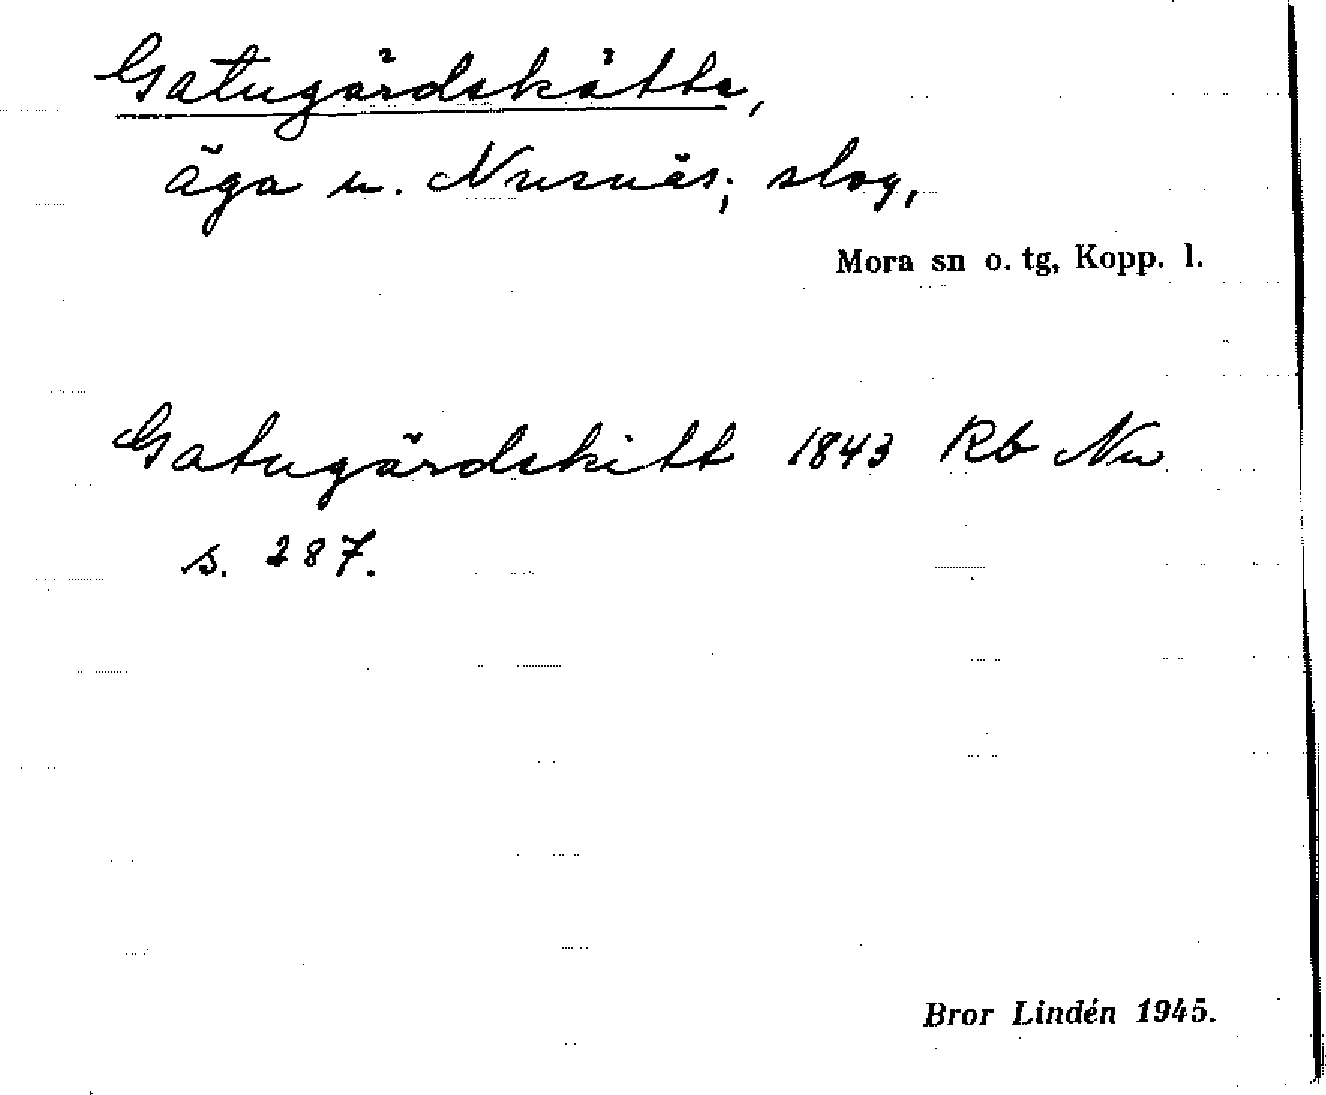 Gatugårdskåtta,
äga u. Nusnäs; slog,
Mora sn o. tg, Kopp. l.
Gatugårdskitt 1843 Rb Nu
s. 287.
Bror Lindén 1945.